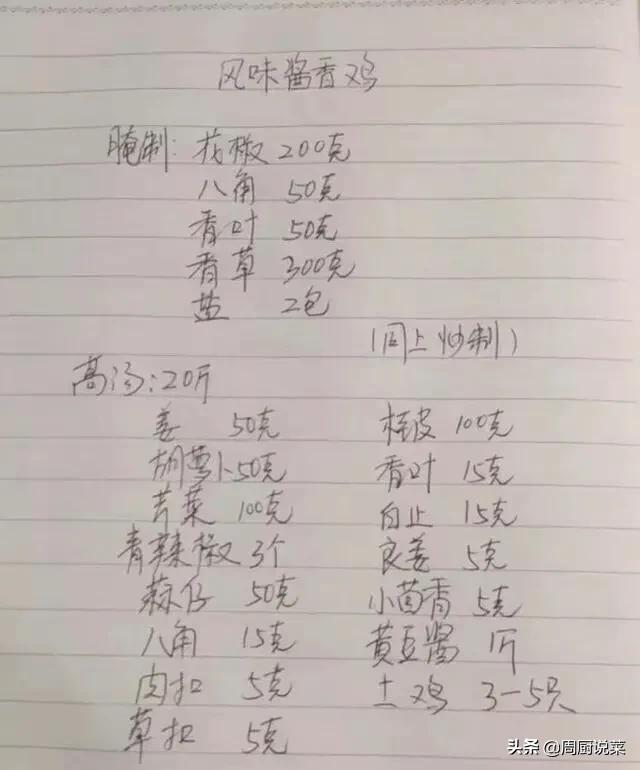 风味酱香鸡
腌制: 花椒 200克
八角 50克
香叶 50克
香草 300克
盐 2包
(同上炒制)
高汤:20斤
姜 50克
胡萝卜50克
芹菜 100克
青辣椒 3个
蒜仔 50克
八角 15克
肉扣 5克
草扣 5克
桂皮 100克
香叶 15克
白止 15克
良姜 5克
小茴香 5克
黄豆酱 1斤
土鸡 3-5只
头条 @周厨说菜